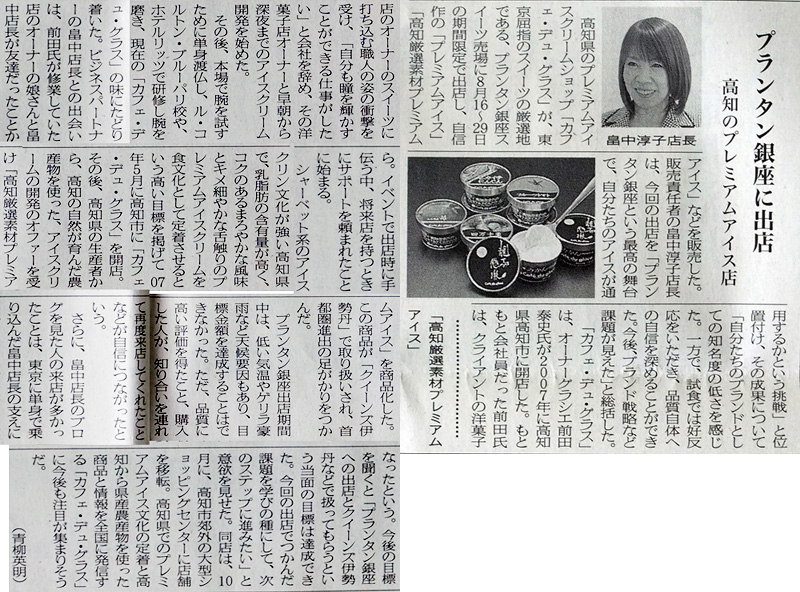 プランタン銀座に出店
高知のプレミアムアイス店
畠中淳子店長
高知県のプレミアムアイ
スクリームショップ「カフ
ェ・デュ・グラス」が、東
京屈指のスイーツの厳選地
である、プランタン銀座ス
イーツ売場に8月16〜29日
の期間限定で出店し、自信
作の「プレミアムアイス」
「高知厳選素材プレミアム
アイス」などを販売した。
販売責任者の畠中淳子店長
は、今回の出店を「プラン
タン銀座という最高の舞台
で、自分たちのアイスが通
用するかという挑戦」と位
置付け、その成果について
「自分たちのブランドとし
ての知名度の低さを感じ
た。一方で、試食では好反
応をいただき、品質自体へ
の自信を深めることができ
た。今後、ブランド戦略など
課題が見えた」と総括した。
「カフェ・デュ・グラス」
は、オーナーグラシエ前田
泰史氏が2007年に高知
県高知市に開店した。もと
もと会社員だった前田氏
は、クライアントの洋菓子
「高知厳選素材プレミアム
アイス」
店のオーナーのスイーツに
打ち込む職人の姿の衝撃を
受け、「自分も瞳を輝かす
ことができる仕事がした
い」と会社を辞め、その洋
菓子店オーナーと早朝から
深夜までのアイスクリーム
開発を始めた。
その後、本場で腕を試す
ために単身渡仏し、ル・コ
ルトン・ブルーパリ校や、
ホテルリッツで研修し腕を
磨き、現在の「カフェ・デ
ュ・グラス」の味にたどり
着いた。ビジネスパートナ
ーの畠中店長との出会い
は、前田氏が修業していた
店のオーナーの娘さんと畠
中店長が友達だったことか
ら。イベントで出店時に手
伝う中、将来店を持つとき
にサポートを頼まれたこと
に始まる。
シャーベット系のアイス
クリン文化が強い高知県
で、乳脂肪の含有量が高く、
コクのあるまろやかな風味
とキメ細やかな舌触りのプ
レミアムアイスクリームを
食文化として定着させると
いう高い目標を掲げて07
年5月に高知市に「カフェ
・デュ・グラス」を開店。
その後、高知県の生産者か
ら、高知の自然が育んだ農
産物を使った、アイスクリ
ームの開発のオファーを受
け「高知厳選素材プレミア
ムアイス」を商品化した。
この商品が「クイーンズ伊
勢丹」で取り扱いされ、首
都圏進出の足がかりをつか
んだ。
プランタン銀座出店期間
中は、低い気温やゲリラ豪
雨など天候要因もあり、目
標金額を達成することはで
きなかった。ただ、品質に
高い評価を得たこと、購入
した人が、知り合いを連れ
て再度来店してくれたこと
などが自信につながったと
いう。
さらに、畠中店長のブロ
グを見た人の来店が多かっ
たことは、東京に単身で乗
り込んだ畠中店長の支えに
なったという。今後の目標
を聞くと「プランタン銀座
への出店とクイーンズ伊勢
丹などで扱ってもらうとい
う当面の目標は達成でき
た。今回の出店でつかんだ
課題を学びの種にして、次
のステップに進みたい」と
意欲を見せた。同店は、10
月に、高知市郊外の大型シ
ョッピングセンターに店舗
を移転。高知県でのプレミ
アムアイス文化の定着と高
知から県産農産物を使った
商品と情報を全国に発信す
る「カフェ・デュ・グラス」
に今後も注目が集まりそう
だ。
（青柳英明）